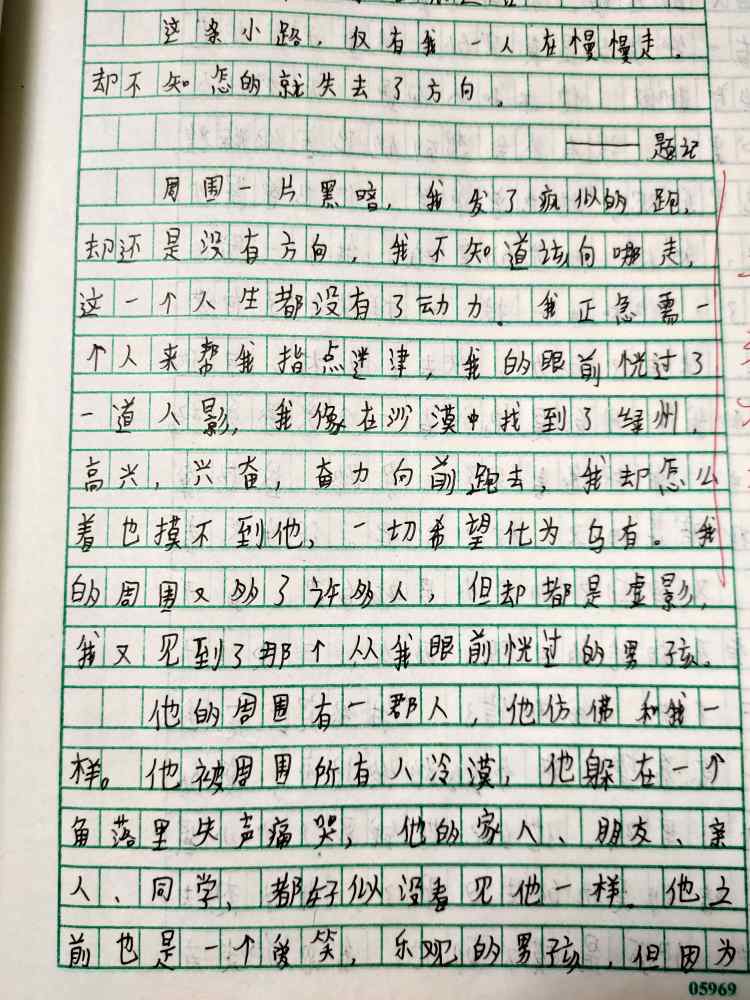 这条小路，仅有我一人在慢慢走。
却不知怎的就失去了方向。
——题记
周围一片黑暗，我发了疯似的跑，
却还是没有方向，我不知道该向哪走，
这一个人生都没有了动力。我正急需一
个人来帮我指点迷津，我的眼前恍过了
一道人影，我像在沙漠中找到了绿州，
高兴，兴奋，奋力向前跑去，我却怎么
着也摸不到他，一切希望化为乌有。我
的周围又多了许多人，但却都是虚影，
我又见到了那个从我眼前恍过的男孩。
他的周围有一群人，他仿佛和我一
样。他被周围所有人冷漠，他躲在一个
角落里失声痛哭，他的家人、朋友、亲
人、同学，都好似没看见他一样。他之
前也是一个爱笑，乐观的男孩，但因为
05969